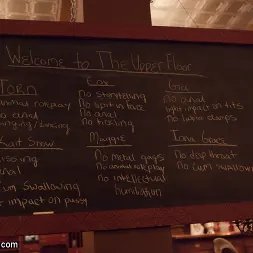 Welcome to The Upper Floor
TORN
animal roleplay
anal
No storytelling
No spit in face
No anal
No tickling
No anal
impact on tits
No labia clamps
Snow
issing
anal
um swallowing
r impact on pussy
Maggie
No metal gags
No animal role play
No intellectual
humiliation
Iona Grace
No deep throat
No cum swallowing
.com